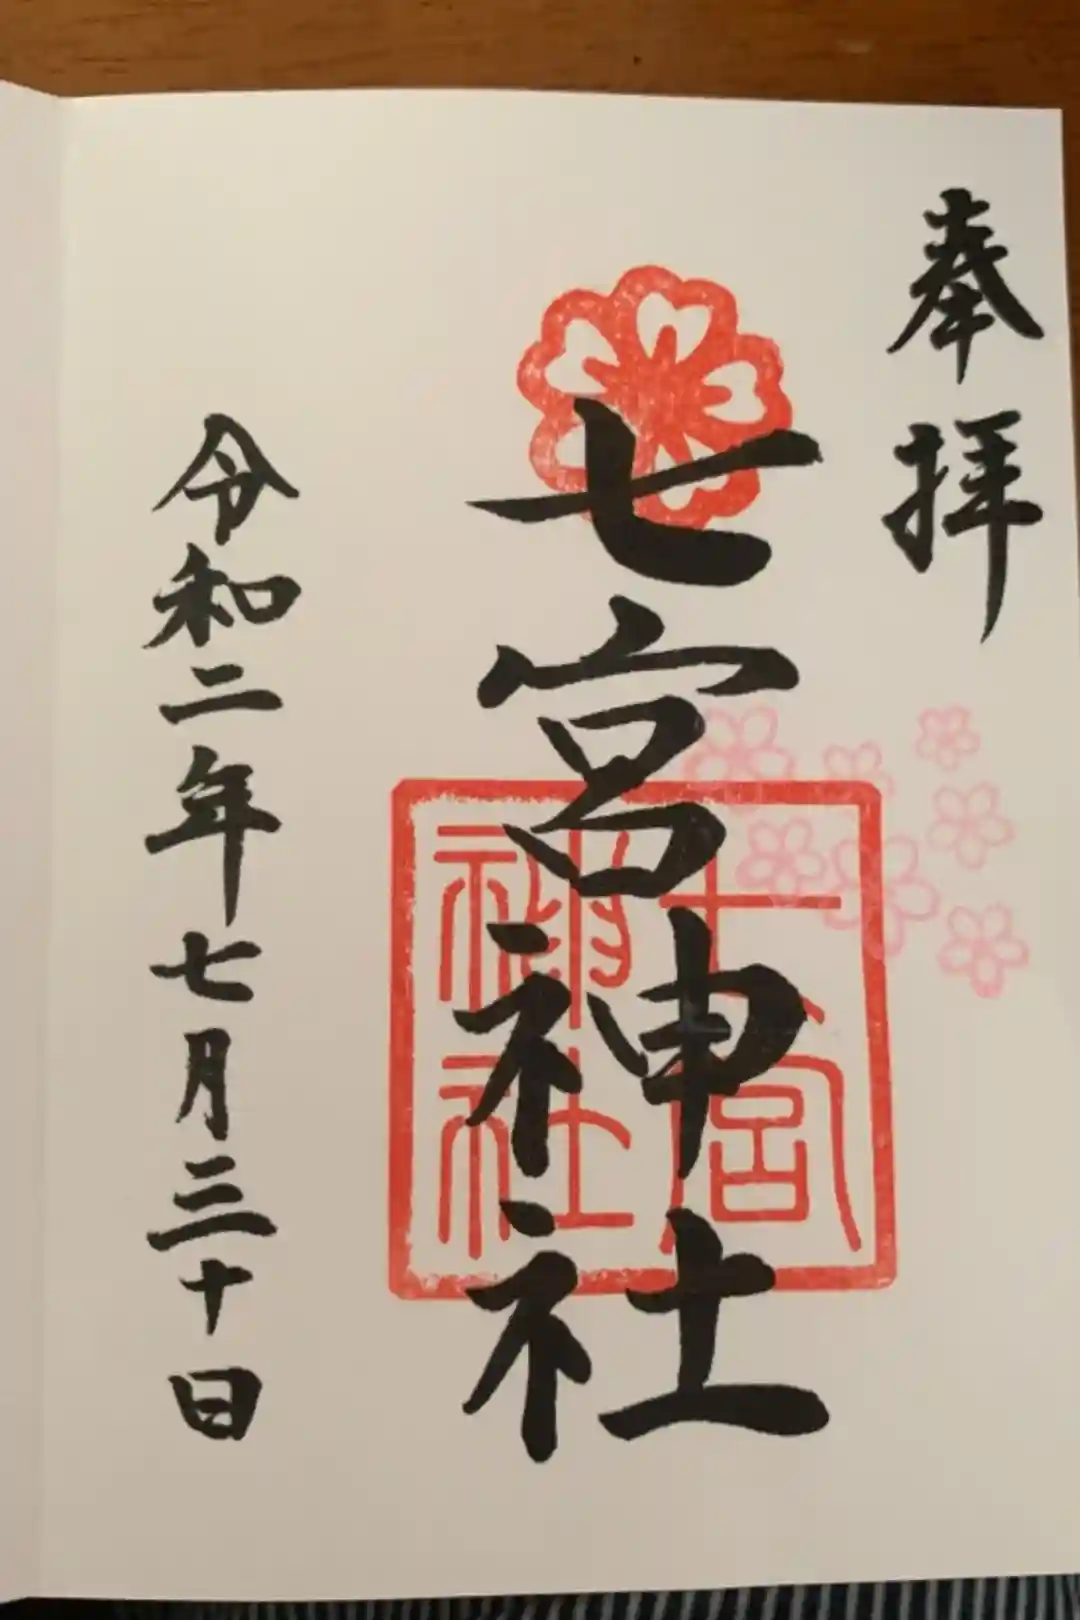 奉拝
七宮神社
七宮
神社
令和二年七月三十日